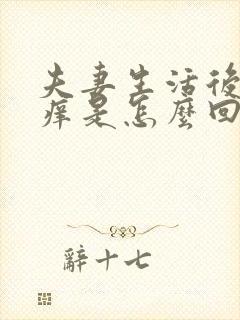 夫妻生活後
痒是怎麼回
辭十七